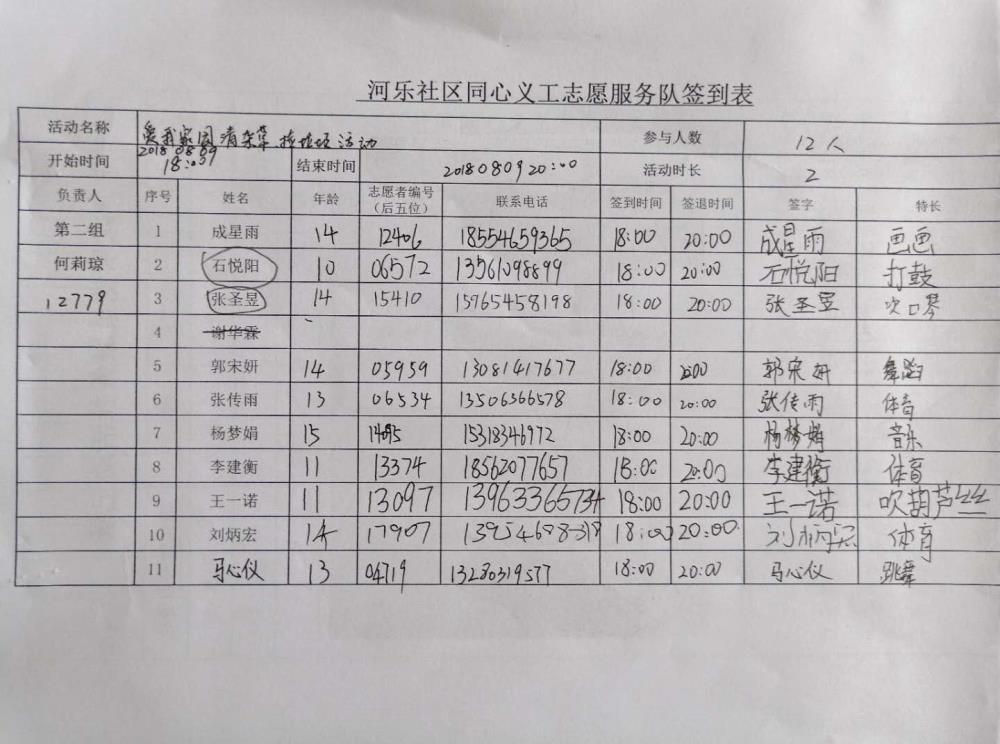 河乐社区同心义工志愿服务队签到表
活动名称 爱我家园清杂草捡垃圾活动 参与人数 12人
开始时间 20180809 18:00 结束时间 20180809 20:00 活动时长 2
负责人 序号 姓名 年龄 志愿者编号（后五位） 联系电话 签到时间 签退时间 签字 特长
第二组 1 成星雨 14 12406 18554659365 18:00 20:00 成星雨 画画
何莉琼 2 石悦阳 10 06572 13561098899 18:00 20:00 石悦阳 打鼓
12779 3 张圣昱 14 15410 15765458198 18:00 20:00 张圣昱 吹口琴
4 谢华霖
5 郭宋妍 14 05959 13081417677 18:00 郭宋妍 舞蹈
6 张传雨 13 06534 13506366578 18:00 20:00 张传雨 体育
7 杨梦娟 15 15318346972 18:00 20:00 杨梦娟 音乐
8 李建衡 11 13374 18562077657 18:00 20:00 李建衡 体育
9 王一诺 11 13097 13963365734 18:00 20:00 王一诺 吹葫芦丝
10 刘炳宏 14 17907 18:00 20:00 刘炳宏 体育
11 马心仪 13 04719 13280319577 18:00 20:00 马心仪 跳舞